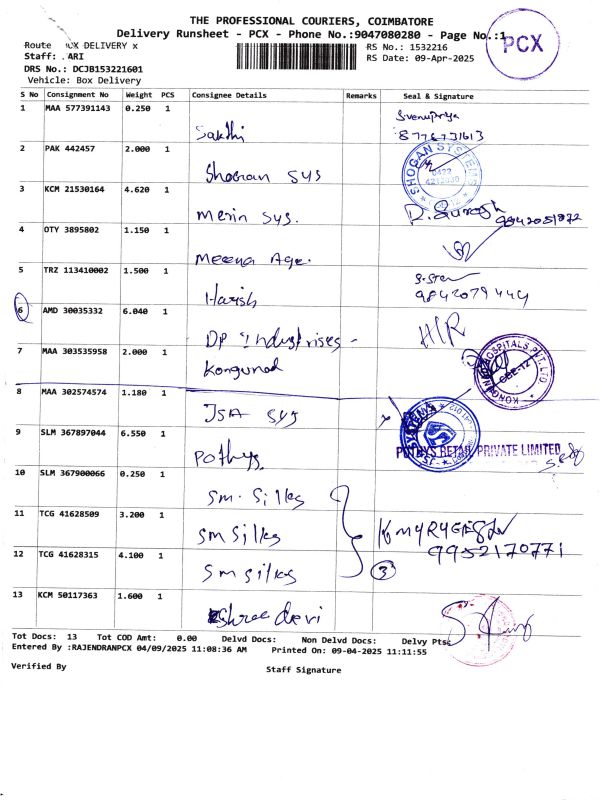 THE PROFESSIONAL COURIERS, COIMBATORE
Delivery Runsheet - PCX - Phone No.:9047080280 - Page No.:1
PCX
Route DELIVERY x
RS No.: 1532216
Staff: ARI
RS Date: 09-Apr-2025
DRS No.: DCJB153221601
Vehicle: Box Delivery
S No Consignment No Weight PCS Consignee Details Remarks Seal & Signature
1 MAA 577391143 0.250 1 Sakthi
2 PAK 442457 2.000 1 Shogan sys SHOGAN SYSTEMS
3 KCM 21530164 4.620 1 Merin sys.
4 OTY 3895802 1.150 1 Meena Age.
5 TRZ 113410002 1.500 1 Harish 9842079444
6 AMD 30035332 6.040 1 DP Industries - H/R
7 MAA 303535958 2.000 1 Kongunad HOSPITALS PVT. LTD
8 MAA 302574574 1.180 1 JSA sys
9 SLM 367897044 6.550 1 Pothys. POTHYS RETAIL PRIVATE LIMITED
10 SLM 367900066 0.250 1 SM. Silks
11 TCG 41628509 3.200 1 SM Silks 9952170771
12 TCG 41628315 4.100 1 SM silks 3
13 KCM 50117363 1.600 1 Shree devi
Tot Docs: 13 Tot COD Amt: 0.00 Delvd Docs: Non Delvd Docs: Delvy Ptsc
Entered By :RAJENDRANPCX 04/09/2025 11:08:36 AM Printed On: 09-04-2025 11:11:55
Verified By
Staff Signature